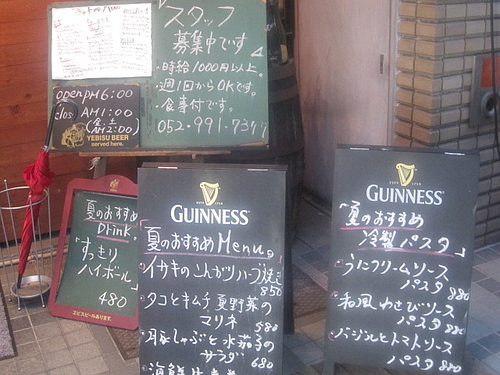 「スタッフ
募集中です
・時給1000円以上。
・週1回からOKです。
・食事付です。
052-991-7347
open PM 6:00
clos. AM 1:00
(金土
AM 2:00)
YEBISU BEER
served here.
夏のおすすめ
Drink.
「すっきり
ハイボール」
480
ヱビスビールあります。
GUINNESS
「夏のおすすめMenu。」
・イサキのこんがりハーブ焼き
850
・タコとキムチ 夏野菜の
マリネ
580
・豚しゃぶと水茄子の
サラダ
680
GUINNESS
「夏のおすすめ
冷製パスタ」
・うにクリームソース
パスタ 880
・和風わさびソース
パスタ 880
・バジルとトマトソース
パスタ 880